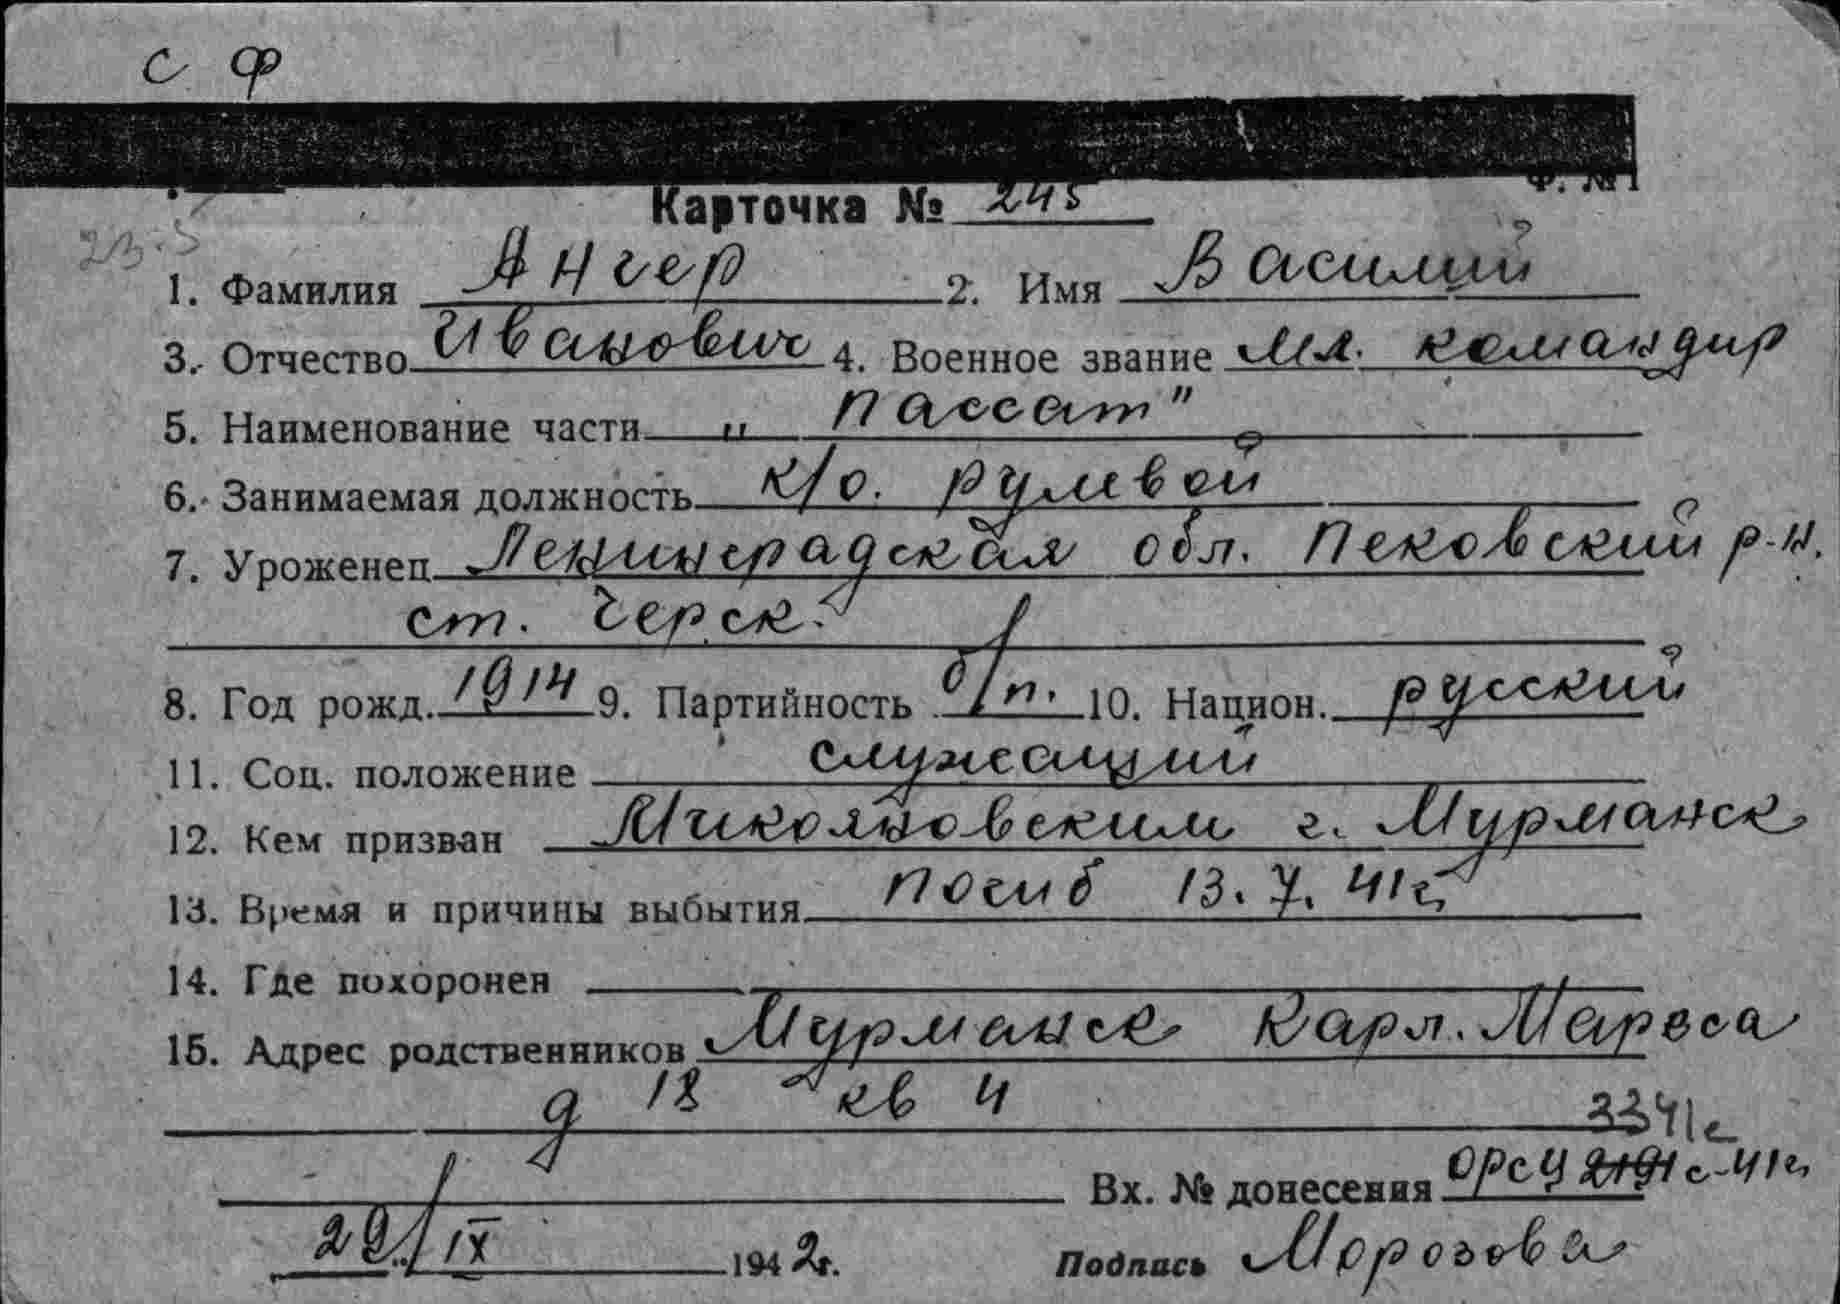 С Ф
Ф. №1
Карточка № 245
23.5
1. Фамилия Ангер 2. Имя Василий
3. Отчество Иванович 4. Военное звание мл. командир
5. Наименование части „Пассат"
6. Занимаемая должность к/о. рулевой
7. Уроженец Ленинградская обл. Псковский р-н.
ст. Черск.
8. Год рожд. 1914 9. Партийность б/п. 10. Национ. русский
11. Соц. положение служащий
12. Кем призван Микояновским г. Мурманск
13. Время и причины выбытия погиб 13.7.41г.
14. Где похоронен
15. Адрес родственников Мурманск Карл. Маркса
д 18 кв 4
3341с
Вх. № донесения ОРСУ 2191с-41г.
29/IX 1942г. Подпись Морозова